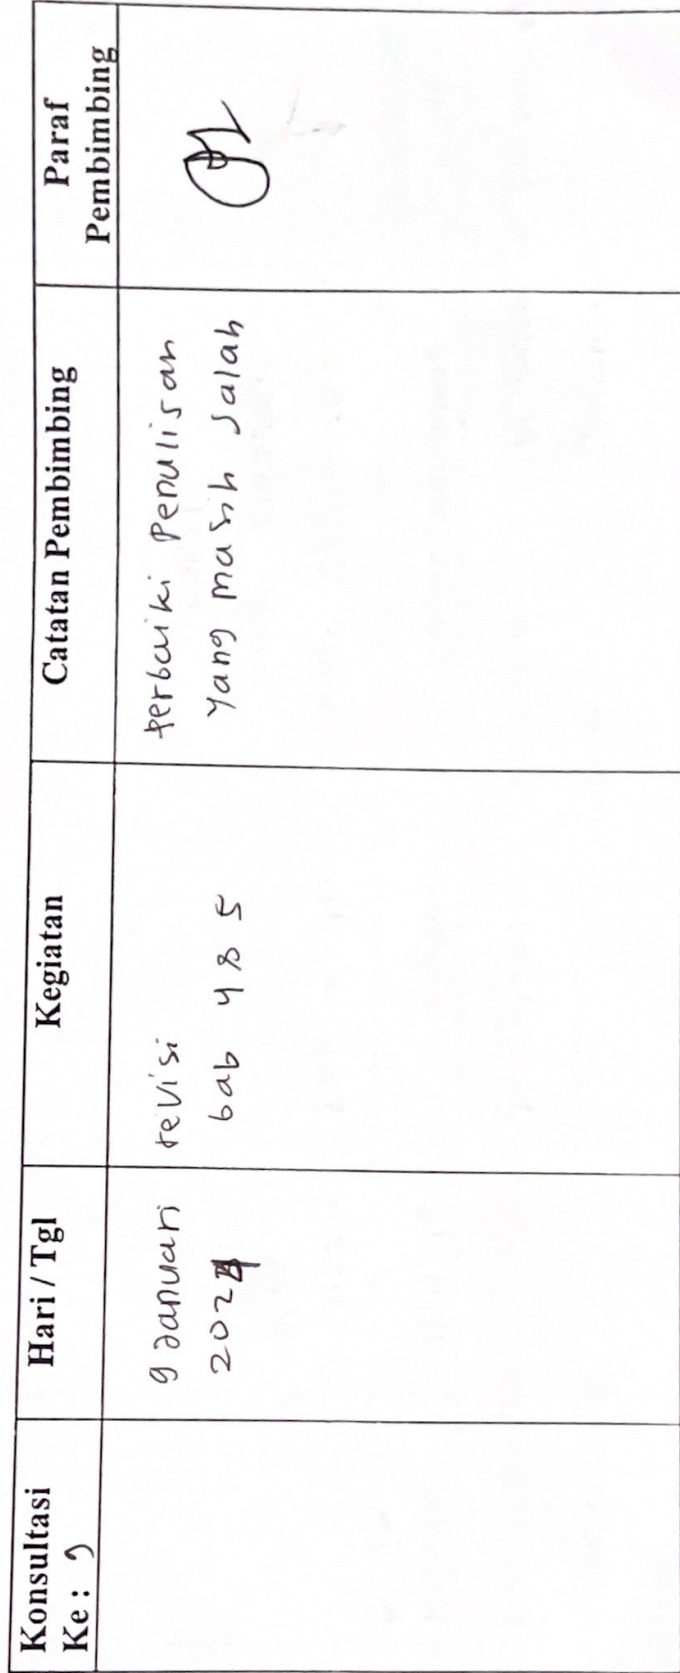 Konsultasi
Ke : 9
Hari / Tgl
Kegiatan
Catatan Pembimbing
Paraf
Pembimbing
9 Januari
2024
revisi
bab 4 & 5
perbaiki Penulisan
Yang masih salah